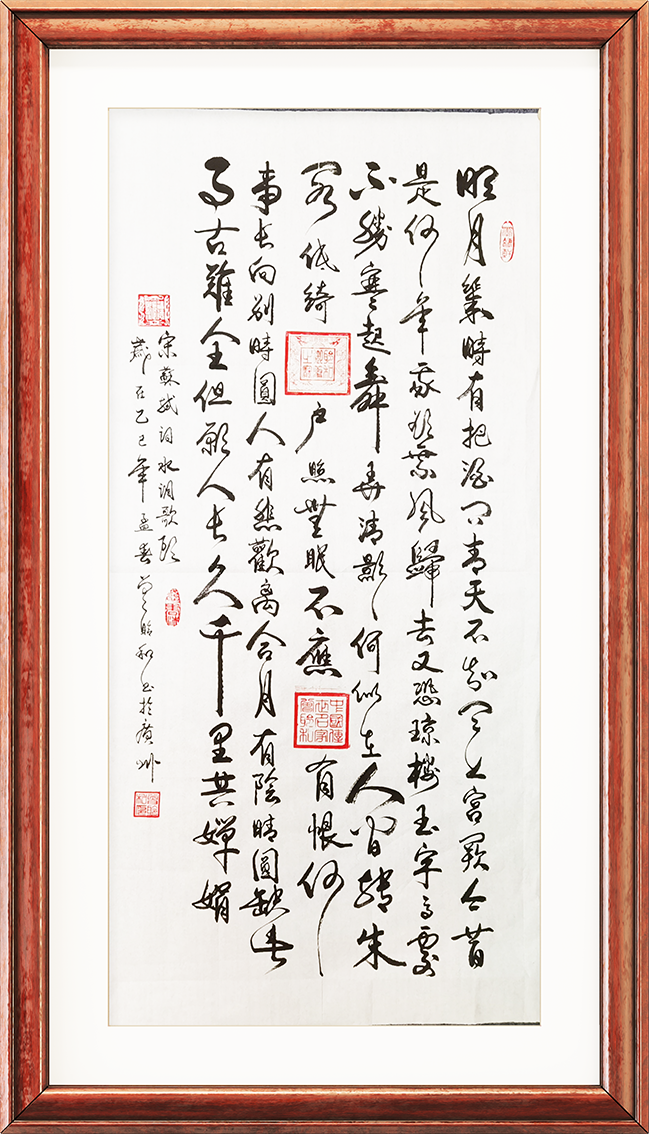 明月幾時有把酒问青天不知天上宮闕今昔
是何年我欲乘風歸去又恐琼樓玉宇高處
不勝寒起舞弄清影何似在人间轉朱
閣低綺户照無眠不應有恨何
事长向別時圓人有悲歡离合月有陰晴圓缺此
事古難全但願人长久千里共嬋娟
宋蘇軾詞水調歌頭
歲在乙巳年孟春曾和書於廣州